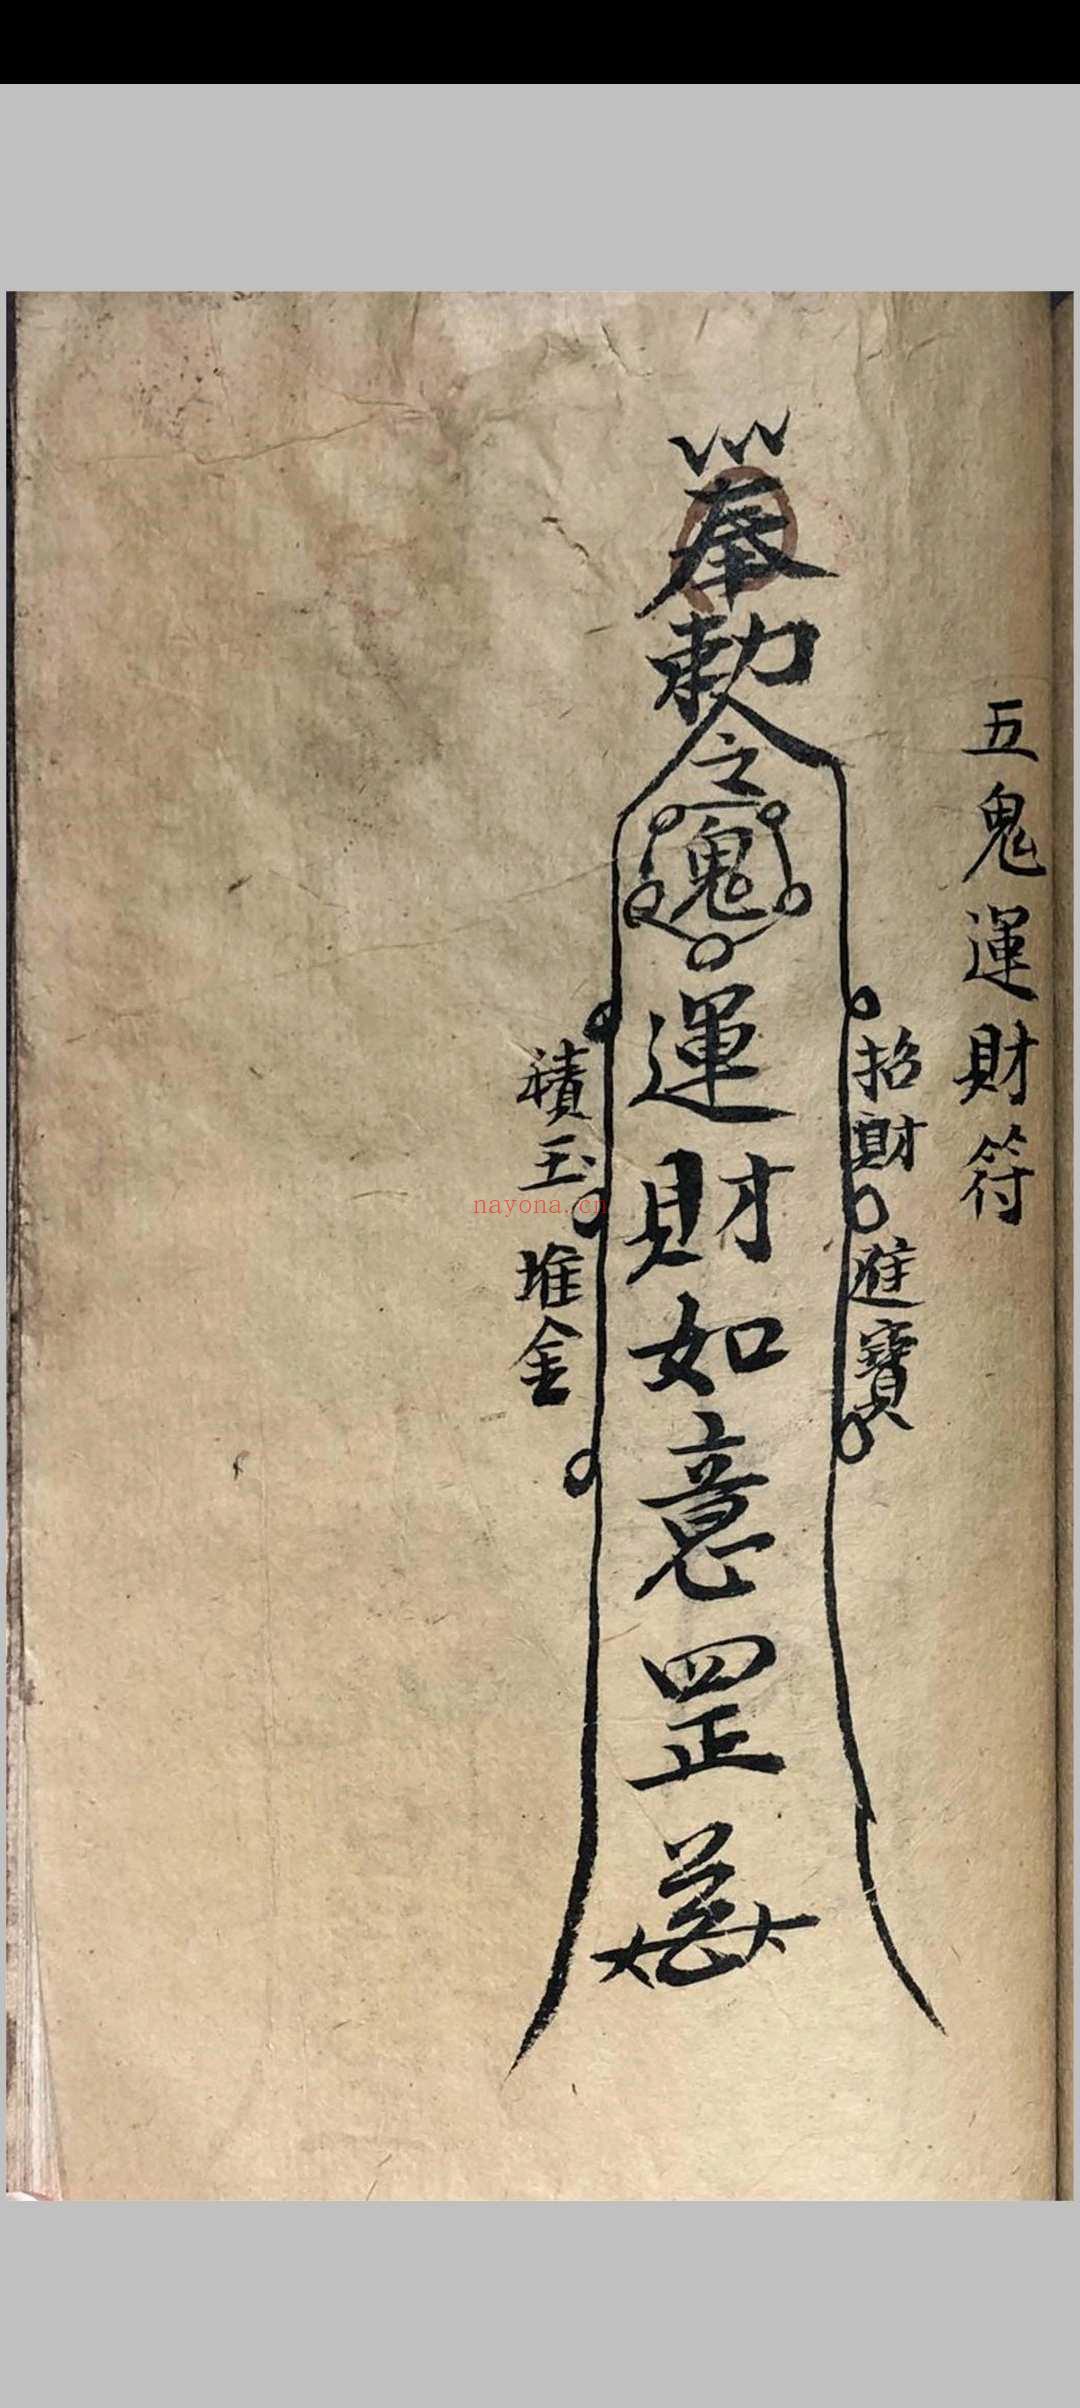 五鬼運財符
奉勅令
鬼
運財如意罡
招財進寶
積玉堆金
nayona.cn